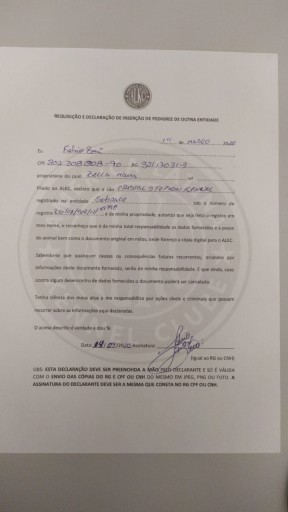 REQUISIÇÃO E DECLARAÇÃO DE INSERÇÃO DE PEDIGREE DE OUTRA ENTIDADE
de MARÇO
Eu
CPF
proprietário do canil Bella
filiado ao ALEC, declaro que o cão
registrado na entidade sob o número de
registro é de minha propriedade, autorizo que seja feito o registro em
meu nome, e reconheço que é de minha total responsabilidade os dados fornecidos e a posse
do animal bem como o documento original em mãos, onde forneço a cópia digital para o ALEC.
Sabendo-se que quaisquer causas ou consequências futuras recorrentes, oriundas por
informações deste documento fornecido, serão de minha responsabilidade. E que ainda, caso
ocorra algum desencontro de dados o documento poderá ser cancelado.
Tenho ciência dos meus atos e me responsabilizo por ações cíveis e criminais que possam
recorrer sobre as informações aqui declaradas.
O acima descrito é verdade e dou fé.
Data: Assinatura:
(igual ao RG ou CNH)
OBS: ESTA DECLARAÇÃO DEVE SER PREENCHIDA A MÃO PELO DECLARANTE E SÓ É VÁLIDA
COM O ENVIO DAS CÓPIAS DO RG E CPF OU CNH DO MESMO EM JPEG, PNG OU FOTO. A
ASSINATURA DO DECLARANTE DEVE SER A MESMA QUE CONSTA NO RG CPF OU CNH.